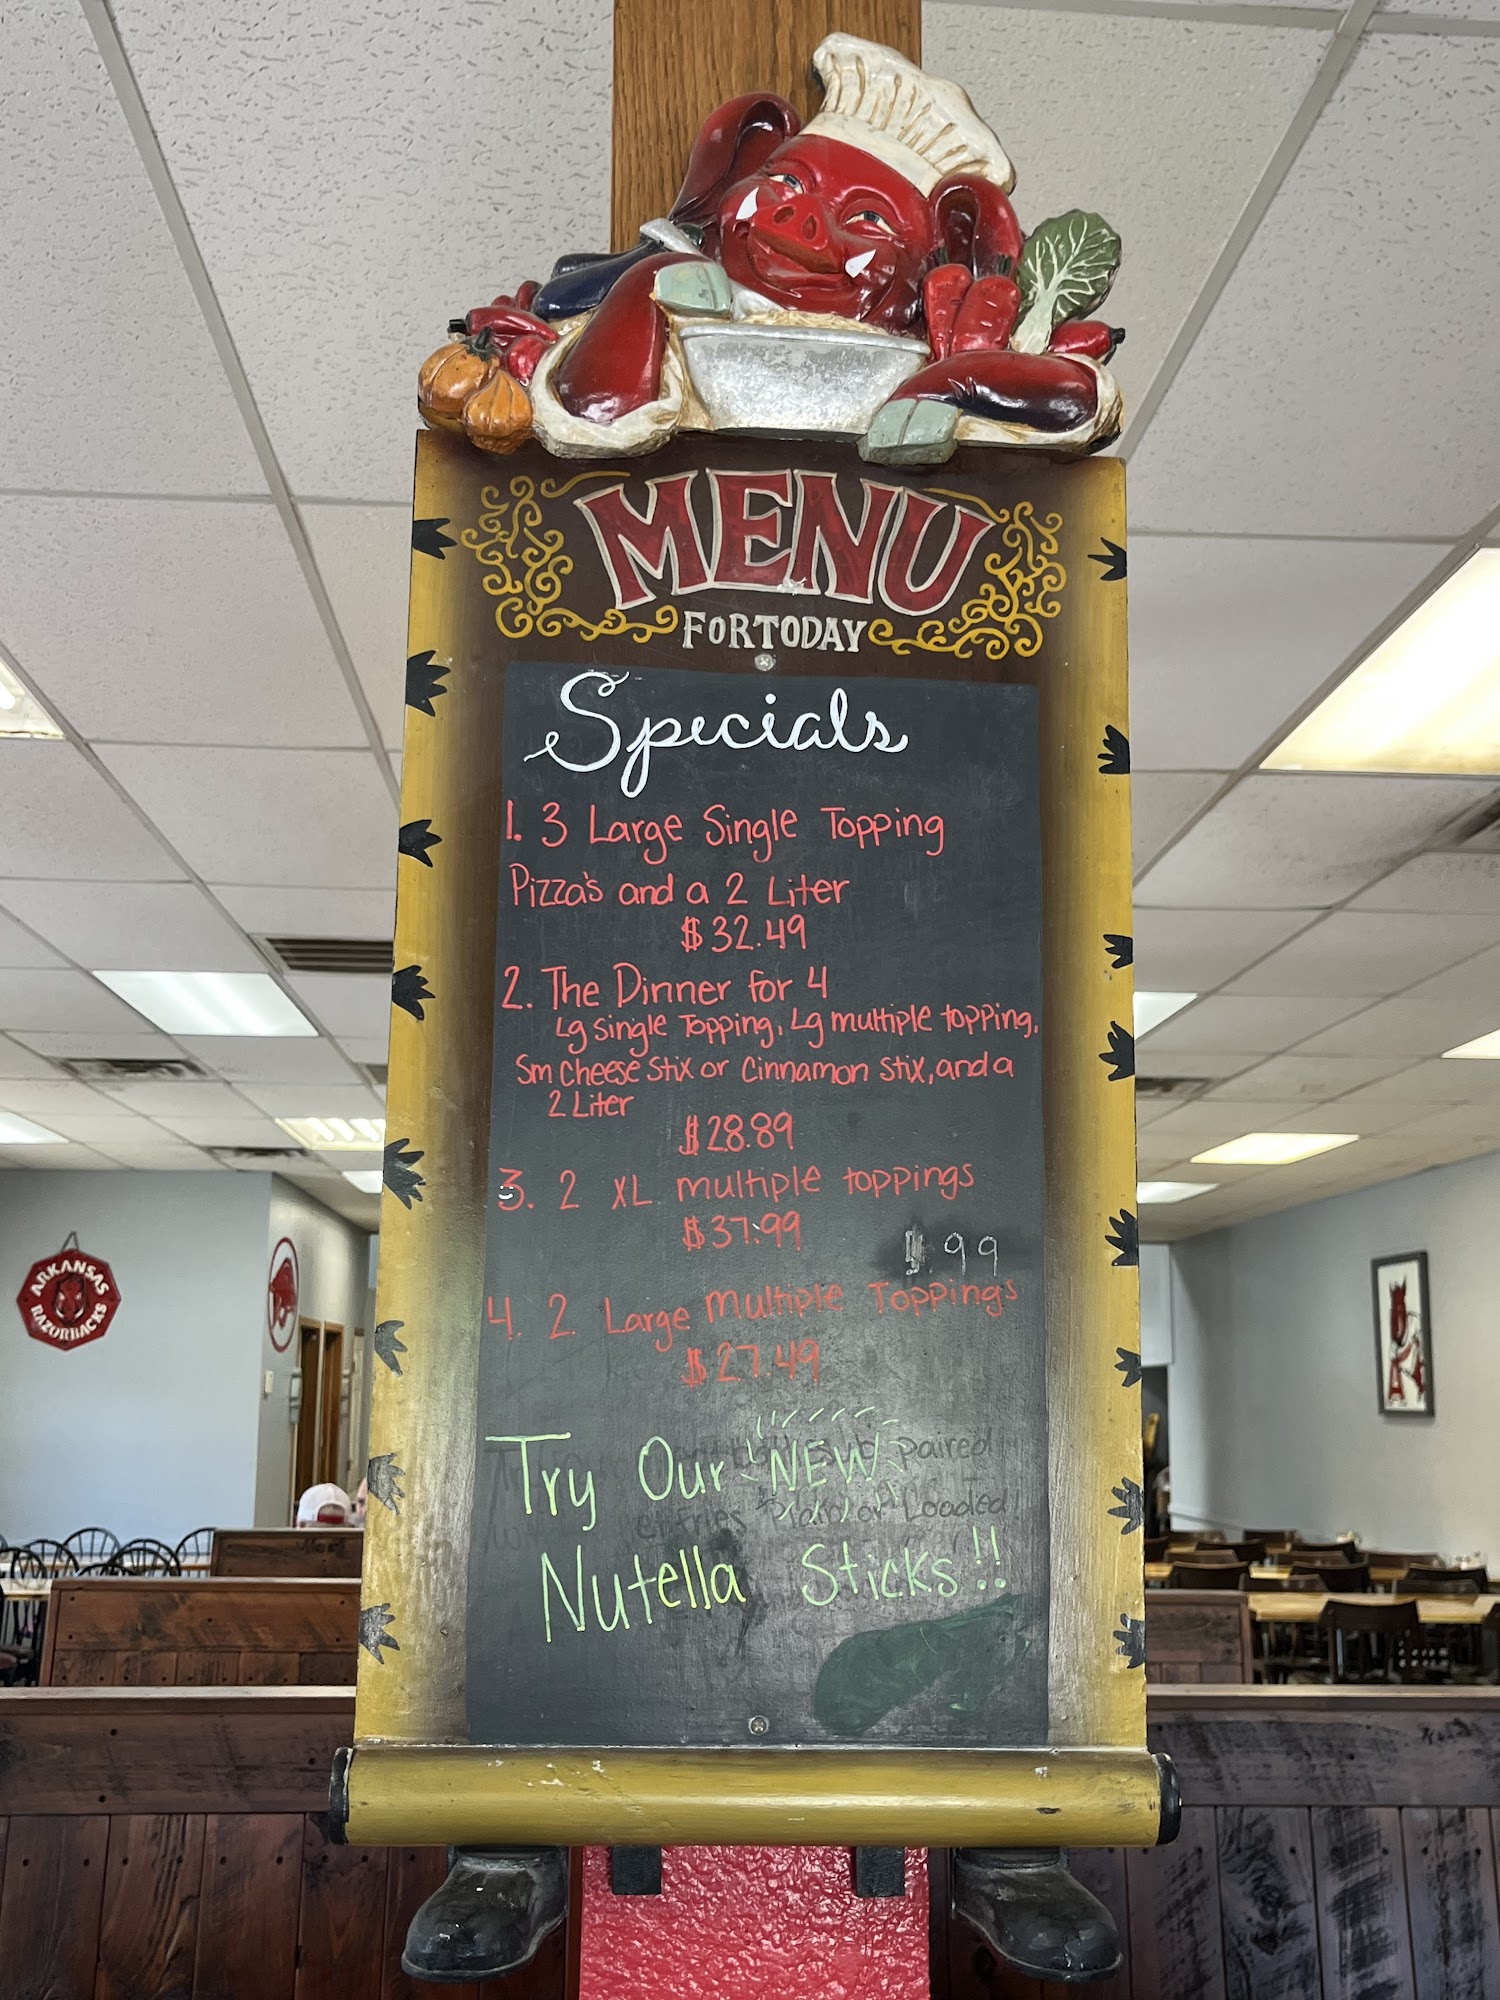 MENU
FOR TODAY
Specials
1. 3 Large Single Topping
Pizza's and a 2 Liter
$32.49
2. The Dinner for 4
Lg single Topping, Lg multiple topping,
Sm Cheese Stix or Cinnamon Stix, and a
2 Liter
$28.89
3. 2 XL multiple toppings
$37.99
$.99
4. 2 Large Multiple Toppings
$27.49
Try Our NEW
paired
fries Plain or Loaded!
Nutella Sticks!!
ARKANSAS
RAZORBACKS